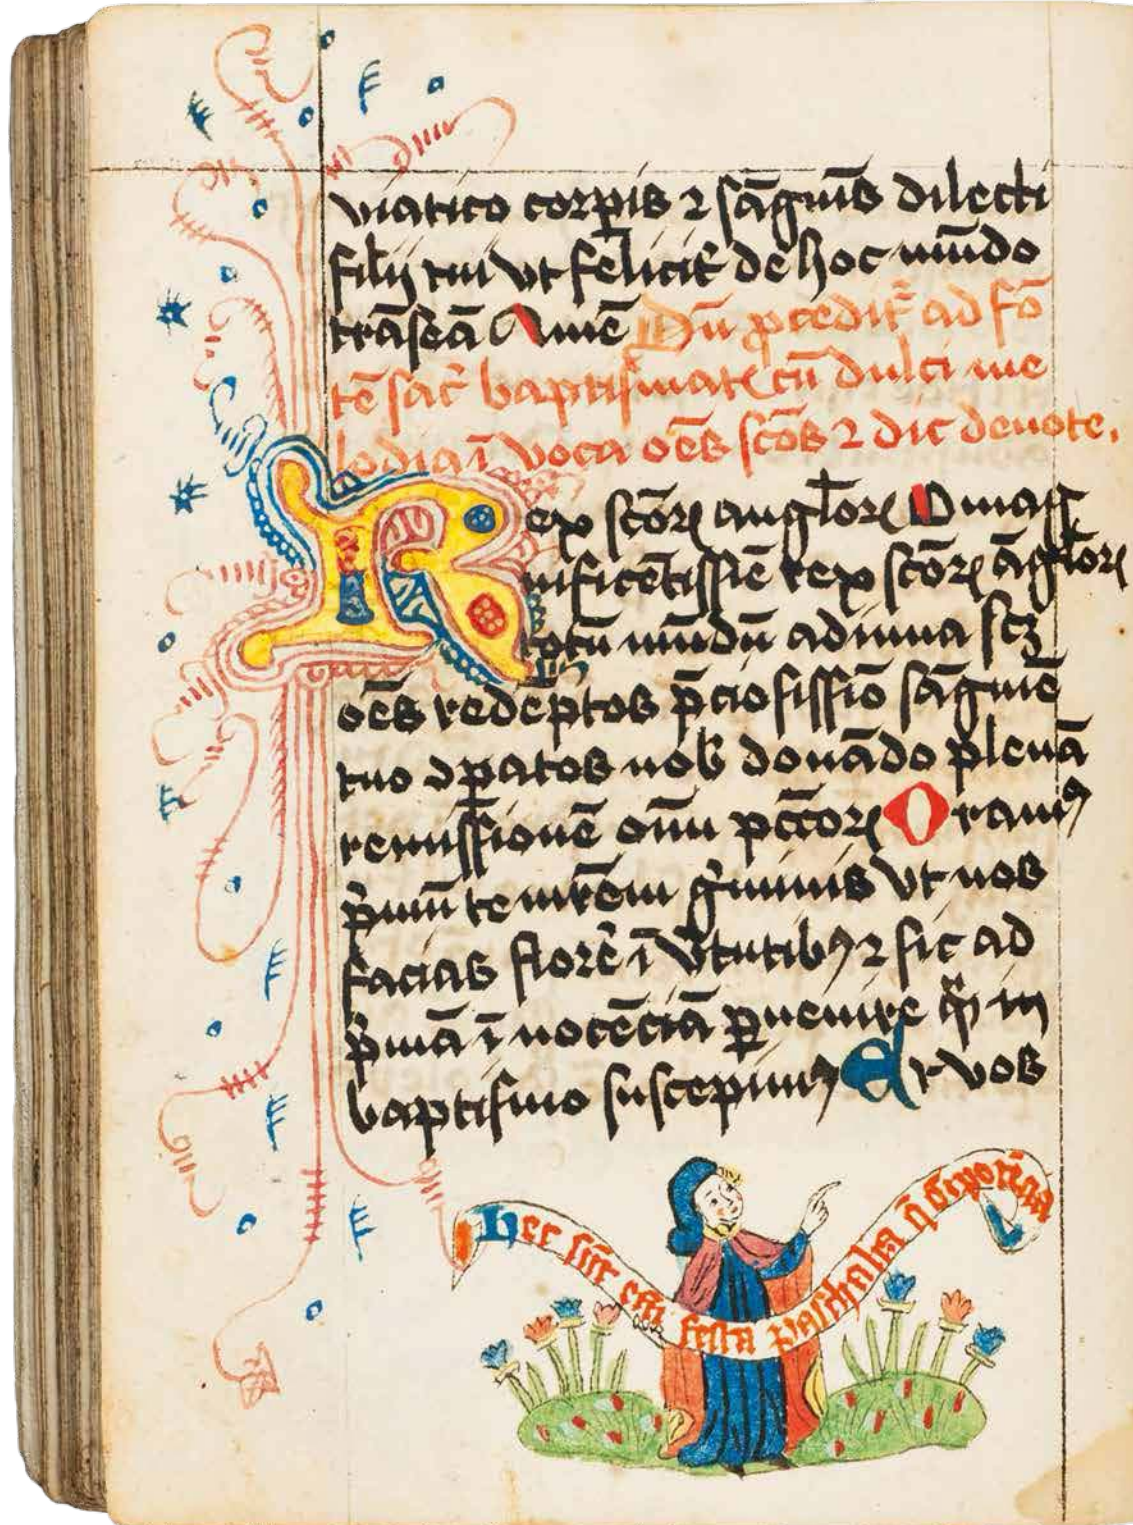 viatico corp̲is ⁊ sāguīs dilecti
filij tui vt felicit̉ de hoc mūdo
trāseā Amē Dū ꝓcedit̉ ad fō
tē sac̉ baptismatꝭ cū dulci me
lodia ī voca oēs scōs ⁊ dic deuote.
Rex scōrꝭ angl̄orꝭ O mag
nificētissīe rex scōrꝭ āgl̄orꝭ
totū mūdū adiuua scꝫ
oēs redēptos p̄ciosissīo sāguīe
tuo dp̲atos nob̄ donādo plenā
remissionē oīm pcc̄orꝭ Oramꝰ
p̉mū te īitēm g̉minis vt nos
facias florē ī v̉tutibꝰ ⁊ sic ad
p̉mā ī nocēciā ꝑuenire q̄ in
baptismo suscepimꝰ Et vos
Hec sūt em̄ festa paschalia ī